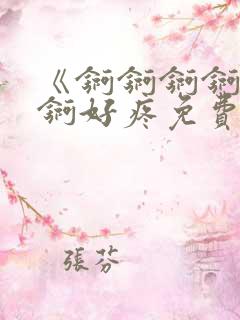 《錒錒錒錒
錒好疼免費
張芬